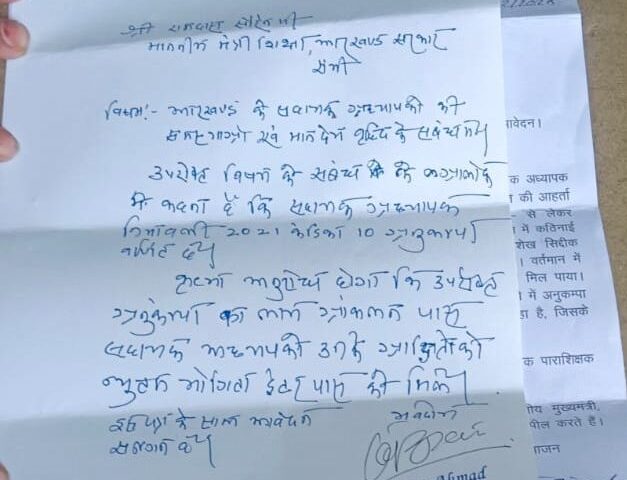 श्री रामदास सोरेन जी
माननीय मंत्री शिक्षा, झारखण्ड सरकार
रांची
विषय:- झारखण्ड के सहायक अध्यापकों की
समस्याओं एवं मानदेय वृद्धि के संबंध में।
उपरोक्त विषय के संबंध में के आलोक
में कहना है कि सहायक अध्यापक
नियमावली 2021 कंडिका 10 अनुकम्पा
वर्णित है।
अनुरोध होगा कि उपरोक्त
अनुकम्पा का लाभ आकलन पास
सहायक अध्यापकों उनके आश्रितों को
न्यूनतम योग्यता इंटर पास को मिले।
पत्र के साथ आवेदन
संलग्न है।
भवदीय
Ahmad
आवेदन।
क अध्यापक
की आहर्ता
से लेकर
में कठिनाई
शेख सिद्दीक
। वर्तमान में
मिल पाया।
में अनुकम्पा
है, जिसके
क पाराशिक्षक
मुख्यमंत्री,
करते हैं।